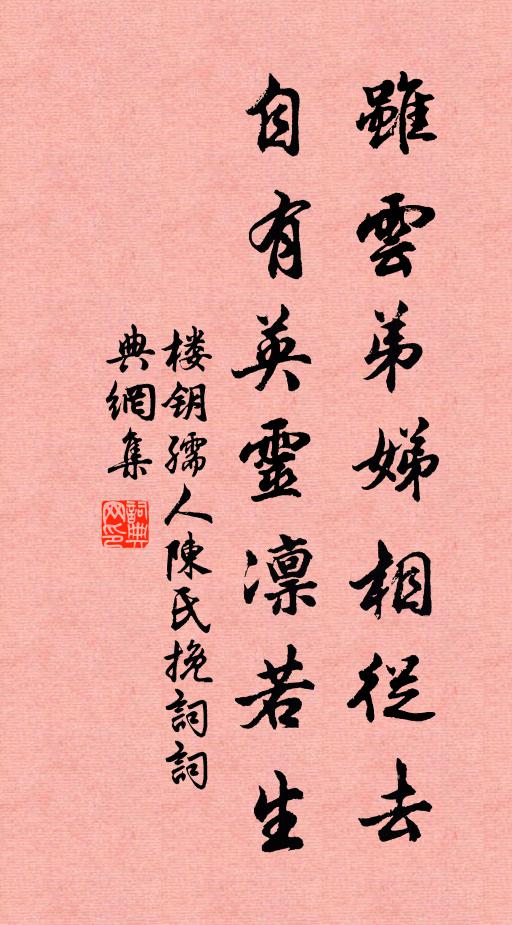 雖雲弟娣相從去
自有英靈凛若生
楼钥孺人陳氏挽詞詞
典網集
詞典網印